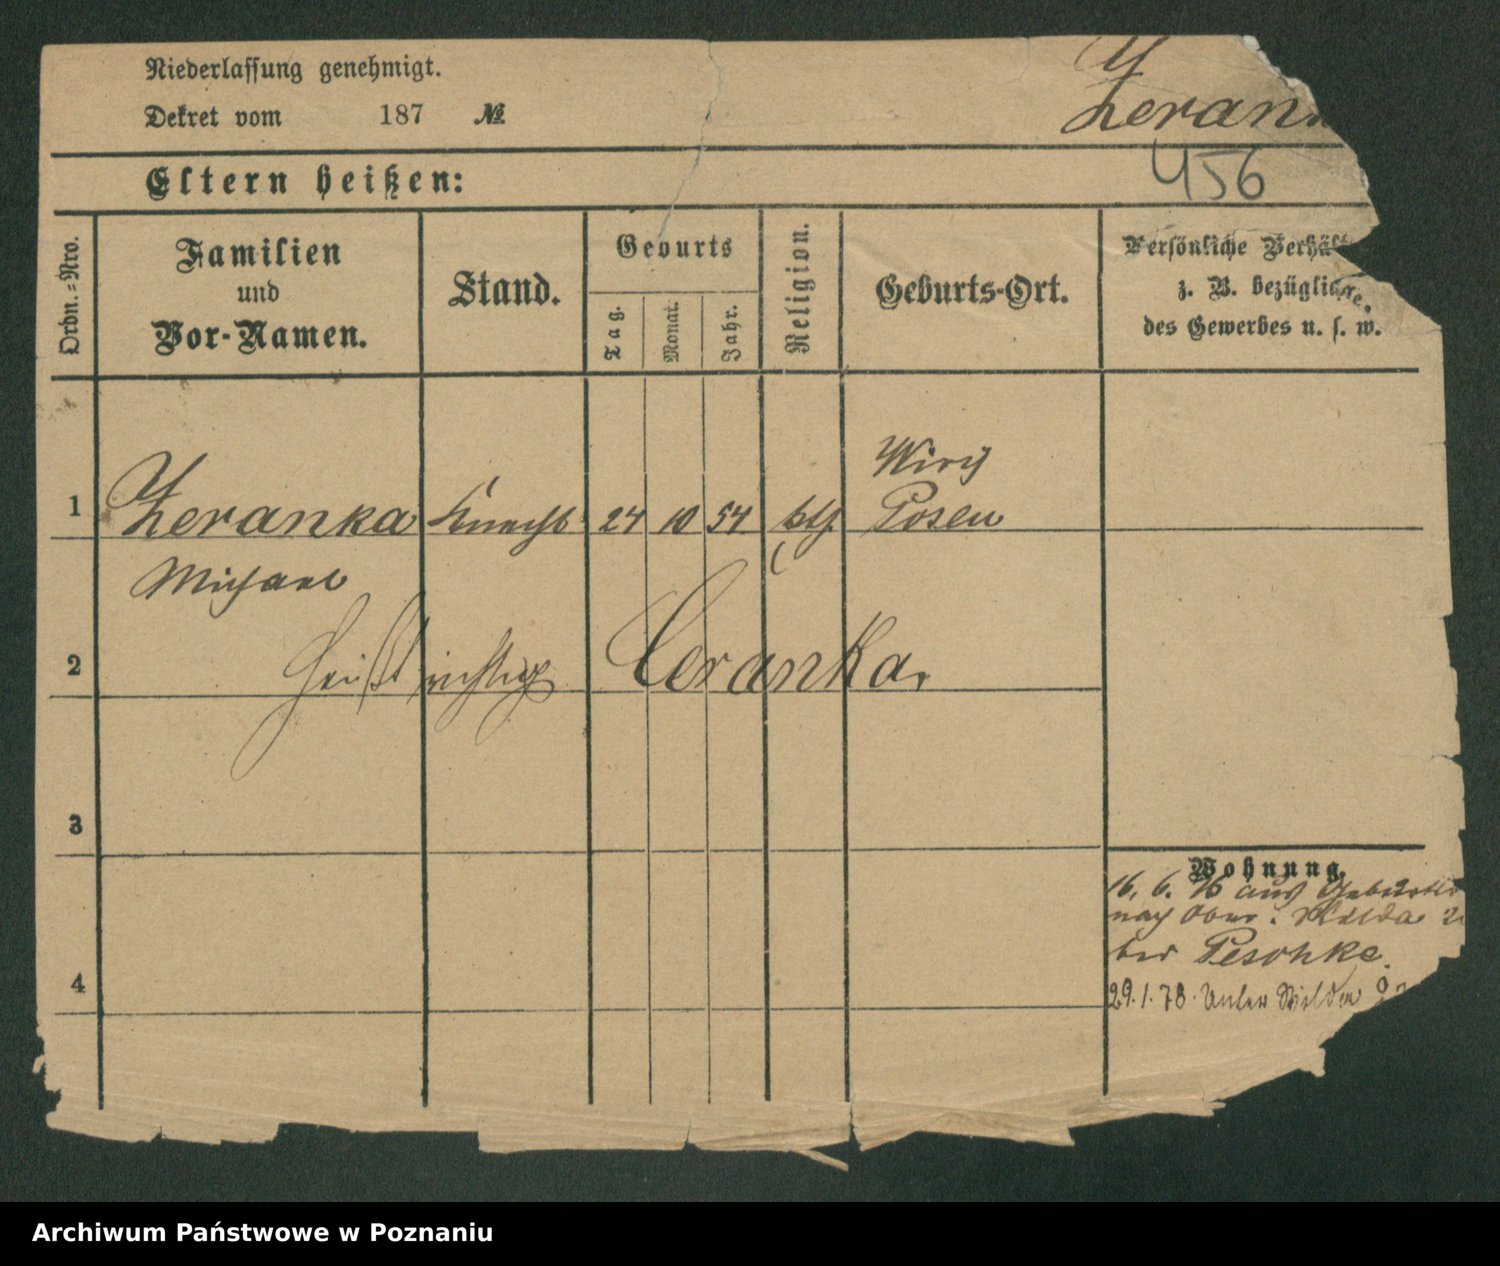 Niederlassung genehmigt.
Dekret vom 187 №
Zeran
456
Eltern heißen:
Ordn.-Nro.
Familien
und
Vor-Namen.
Stand.
Geburts
Tag.
Monat.
Jahr.
Religion.
Geburts-Ort.
Persönliche Verhält
z. B. bezüglich
des Gewerbes u. s. w.
Wiry
1 Zeranka Knecht 24 10 54 kth Posen
Michael
2 heißt richtig Ceranka.
3
Wohnung.
16. 6. 76 aus Geburtso
nach Ober. Wilda
ber Peschke.
4 29.1.78. Unter Wilda
Archiwum Państwowe w Poznaniu